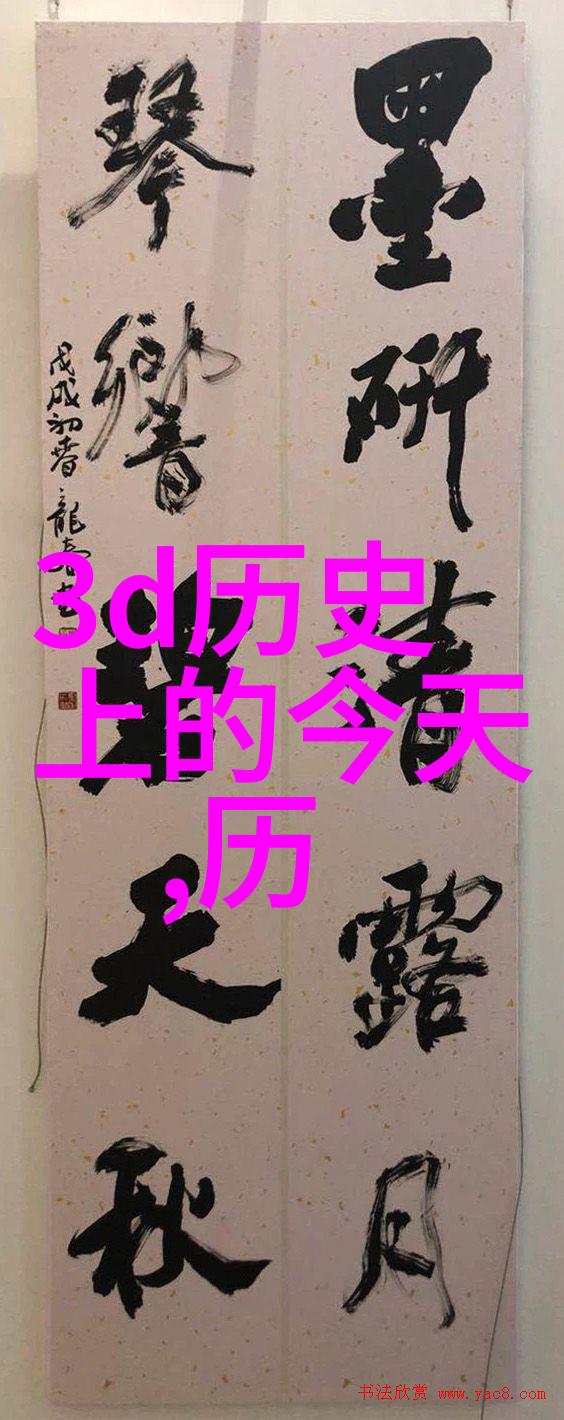 墨研清露月
琴響碧天秋
戊戌初春龍
3d历史
上的今天
,历
书法欣赏 www.yac8.com